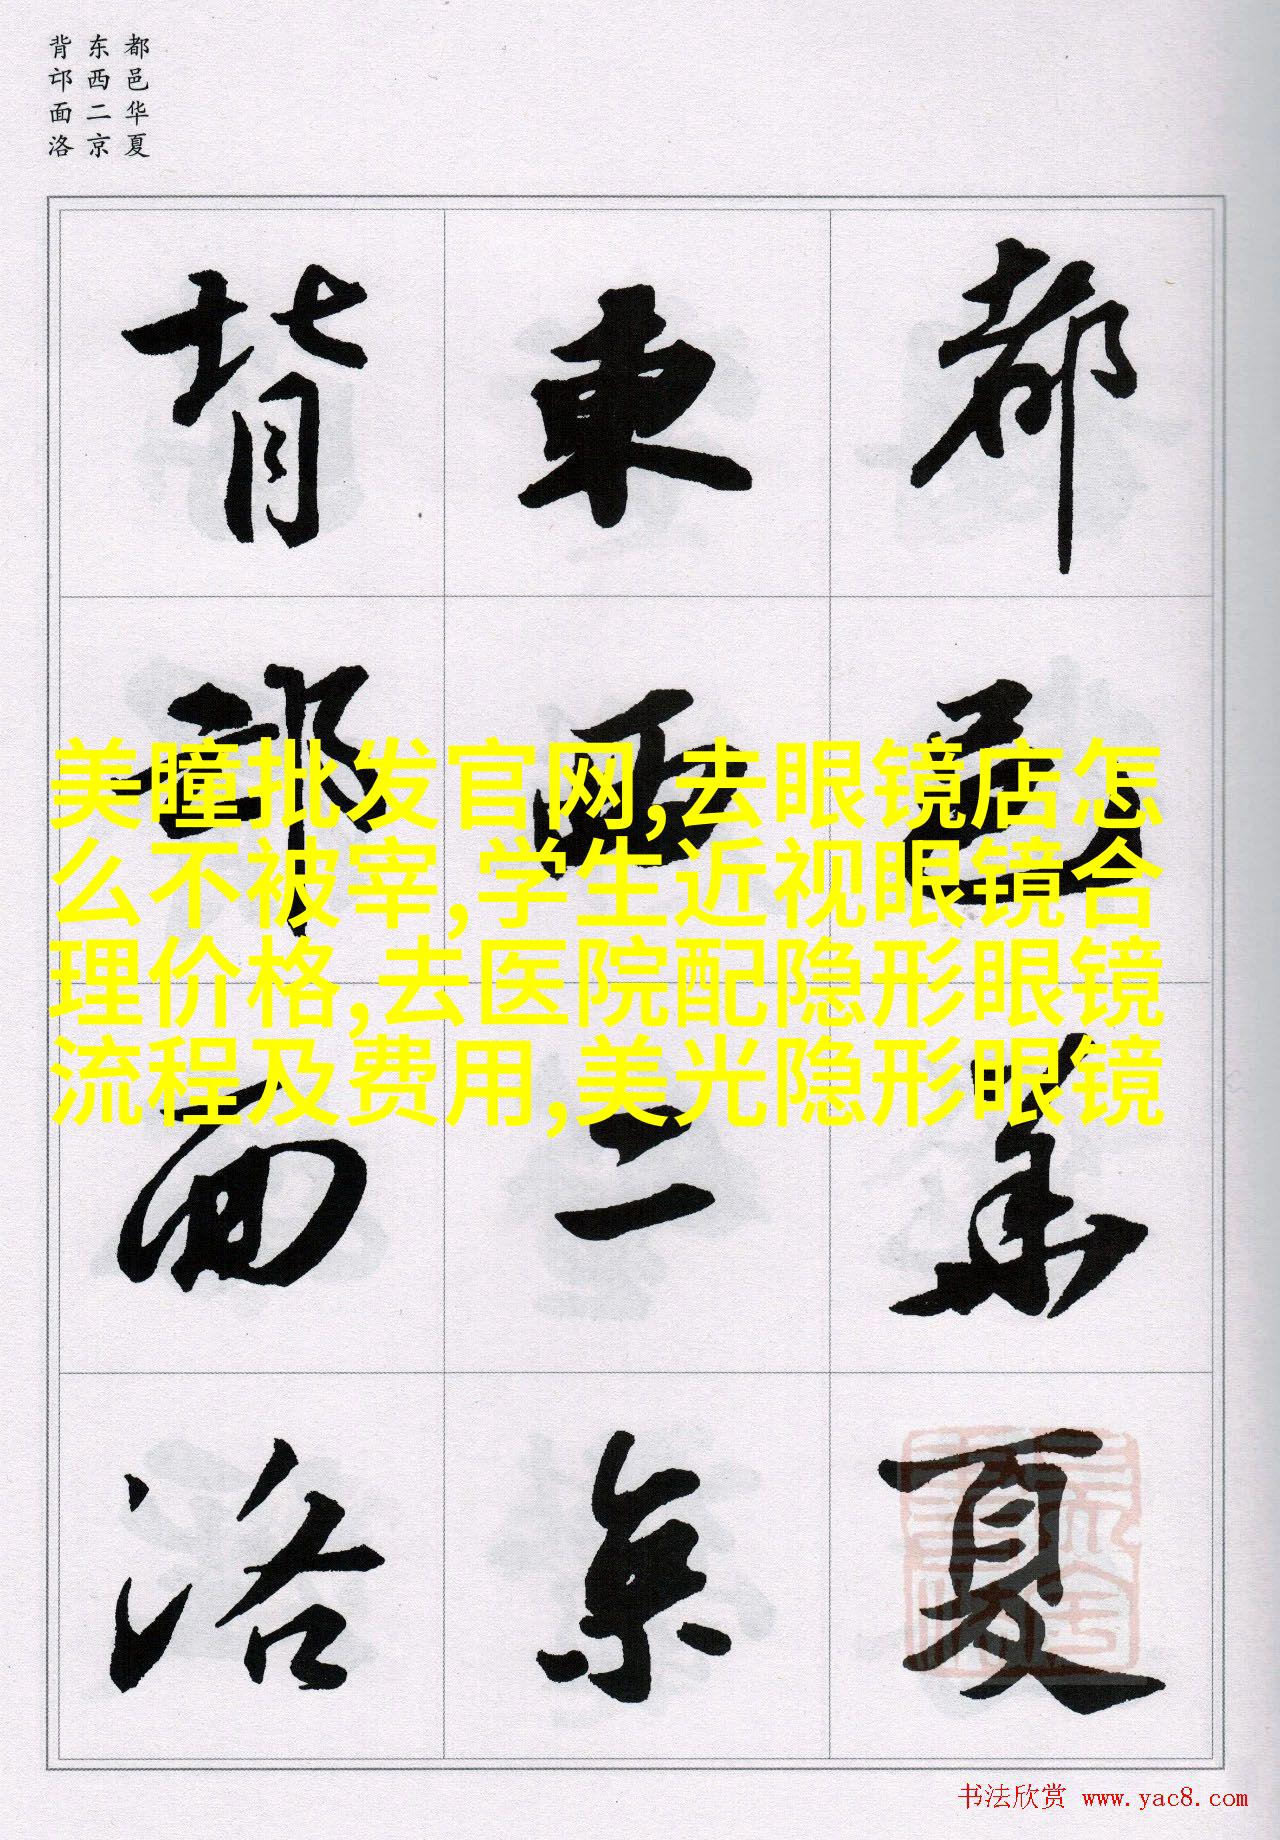 都邑华夏
东西二京
背邙面洛
都邑華夏
東西二京
背邙面洛
美瞳批发官网,去眼镜店怎
么不被宰,学生近视眼镜合
理价格,去医院配隐形眼镜
流程及费用,美光隐形眼镜
书法欣赏 www.yac8.com